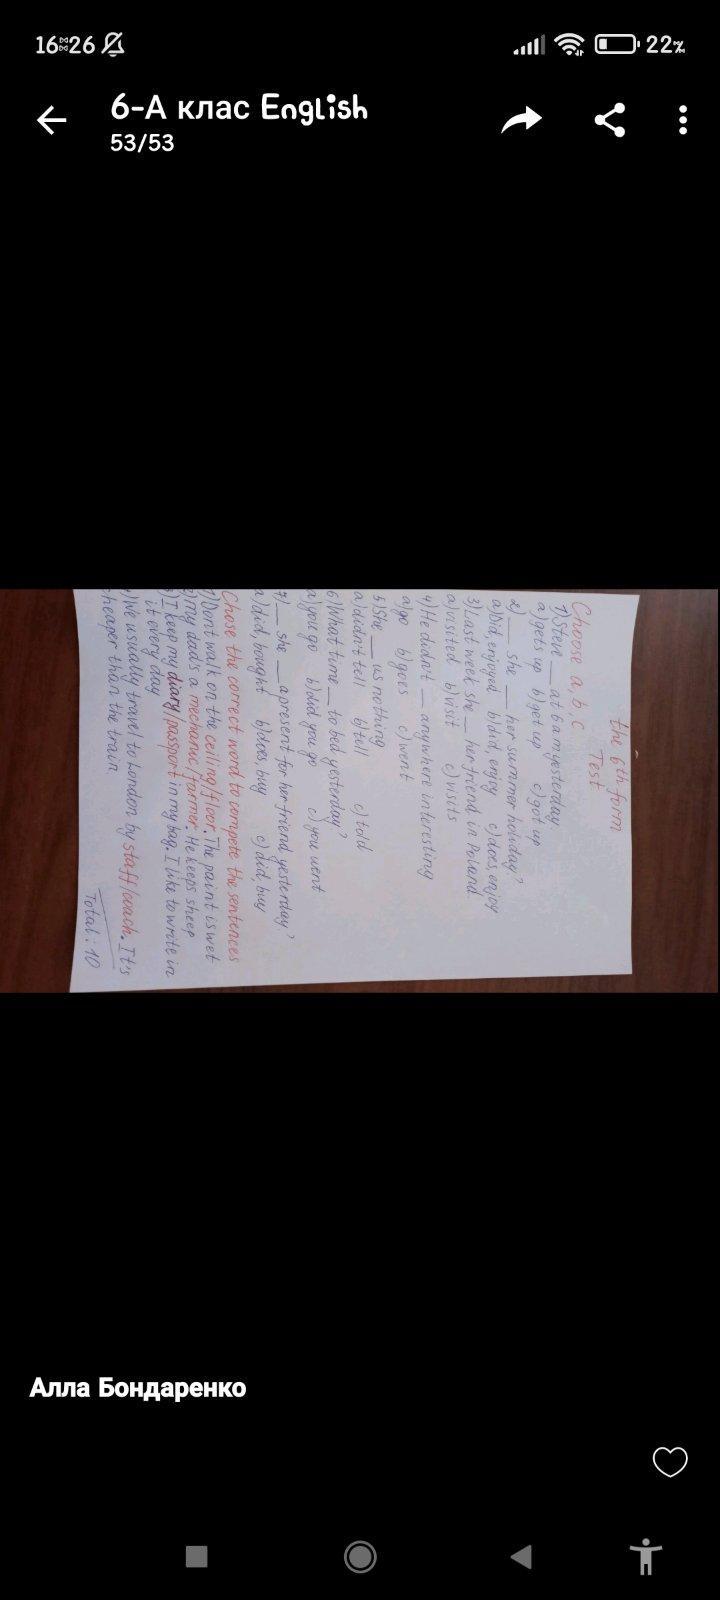 16:26
22%
6-А клас English
53/53
the 6th form
Test
Choose a, b, c
1) Steve __ at 6 am yesterday
a) gets up b) get up c) got up
2) __ she __ her summer holiday?
a) Did, enjoyed b) did, enjoy c) does, enjoy
3) Last week she __ her friend in Poland
a) visited b) visit c) visits
4) He didn't __ anywhere interesting
a) go b) goes c) went
5) She __ us nothing
a) didn't tell b) tell c) told
6) What time __ to bed yesterday?
a) you go b) did you go c) you went
7) __ she __ a present for her friend yesterday?
a) did, bought b) does, buy c) did, buy
Chose the correct word to compete the sentences
1) Don't walk on the ceiling/floor. The paint is wet
2) My dad's a mechanic/farmer. He keeps sheep
3) I keep my diary/passport in my bag. I like to write in
it every day
4) We usually travel to London by staff/coach. It's
cheaper than the train
Total: 10
Алла Бондаренко